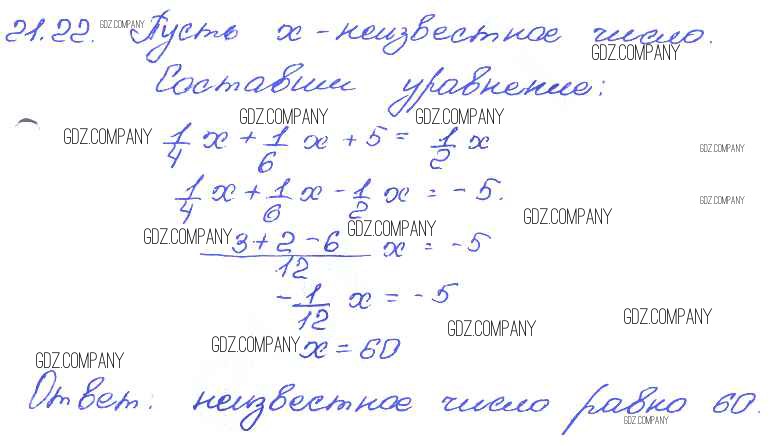 21.22. GDZ.COMPANY Пусть x - неизвестное число.
GDZ.COMPANY
Составим уравнение:
GDZ.COMPANY GDZ.COMPANY
GDZ.COMPANY 1/4 x + 1/6 x + 5 = 1/2 x GDZ.COMPANY
1/4 x + 1/6 x - 1/2 x = -5. GDZ.COMPANY
GDZ.COMPANY
GDZ.COMPANY GDZ.COMPANY
(3+2-6)/12 x = -5
-1/12 x = -5
GDZ.COMPANY GDZ.COMPANY
GDZ.COMPANY x = 60
GDZ.COMPANY
Ответ: неизвестное число равно 60.
GDZ.COMPANY